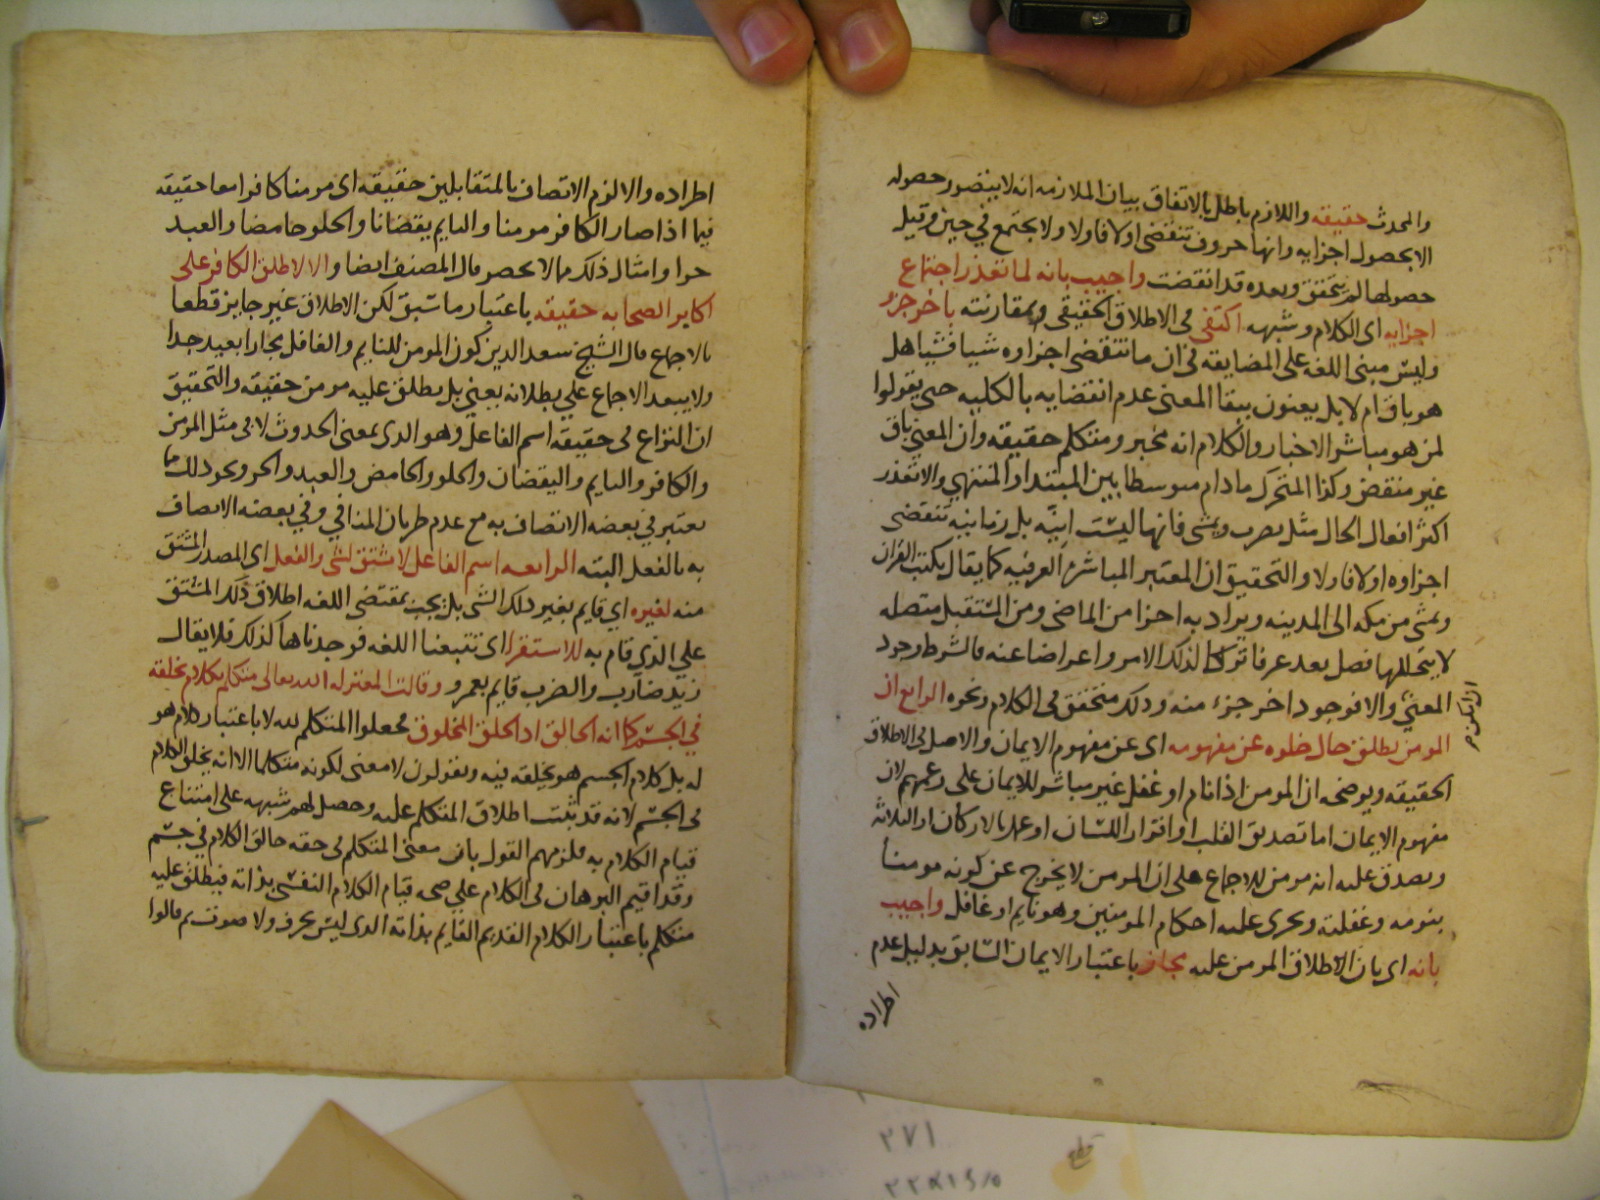 والمحدث حقيقه واللازم باطل بالاتفاق بيان الملازمه انه لا يتصور حصوله
الا بحصول اجزايه وانها حروف تنقضى اولا فاولا ولا تجتمع في حين وقبل
حصولها لم يتحقق وبعده قد انقضت واجيب بانه لما تعذر اجتماع
اجزايه اى الكلام وشبهه اكتفى فى الاطلاق الحقيقى بمقارنته باخر جزء
وليس مبنى اللغه على المضايقه فى ان ما تنقضى اجزاوه شيا فشيا هل
هو باق ام لا بل يعنون ببقا المعنى عدم انقضايه بالكليه حتى يقولوا
لمن هو مباشر الاخبار والكلام انه مخبر ومتكلم حقيقه وان المعنى باق
غير منقض وكذا المتحرك مادام متوسطا بين المبتدا والمنتهي والا تعذر
اكثر افعال الحال مثل يضرب ويمشى فانها ليست انيه بل زمانيه تنقضى
اجزاوه اولا فاولا والتحقيق ان المعتبر المباشره العرفيه كما يقال يكتب القران
ويمشى من مكه الى المدينه ويراد به اجزا من الماضى ومن المستقبل متصله
لا يتخللها فصل يعد عرفا تركا لذلك الامر واعراضا عنه فالشرط وجود
المعنى والا فوجود اخر جزء منه وذلك متحقق فى الكلام ونحوه الرابع ان
المومن يطلق حال خلوه عن مفهومه اى عن مفهوم الايمان والاصل فى الاطلاق
الحقيقه ويوضحه ان المومن اذا نام او غفل غير مباشر للايمان على زعمهم لان
مفهوم الايمان اما تصديق القلب او اقرار اللسان او عمل بالاركان او الثلاثه
ويصدق عليه انه مومن للاجماع على ان المومن لا يخرج عن كونه مومنا
بنومه وغفلته وتجرى عليه احكام المومنين وهو نايم او غافل واجيب
بانه اى بان الاطلاق المومن عليه مجاز باعتبار الايمان السابق بدليل عدم
اطراده
اطراده والا لزم الاتصاف بالمتقابلين حقيقه اى مومنا كافرا معا حقيقه
فيما اذا صار الكافر مومنا والنايم يقضانا والحلو حامضا والعبد
حرا وامثال ذلك مما لا يحصر قال المصنف ايضا والا لاطلق الكافر على
اكابر الصحابه حقيقه باعتبار ما سبق لكن الاطلاق غير جايز قطعا
بالاجماع قال الشيخ سعد الدين كون المومن للنايم والغافل مجازا بعيد جدا
ولا يبعد الاجماع على بطلانه يعني بل يطلق عليه مومن حقيقه والتحقيق
ان النزاع فى حقيقه اسم الفاعل وهو الذى بمعنى الحدوث لا فى مثل المومن
والكافر والنايم واليقضان والحلو والحامض والعبد والحر ونحو ذلك مما
يعتبر في بعضه الاتصاف به مع عدم طريان المنافي وفي بعضه الاتصاف
به بالفعل البته الرابعه اسم الفاعل لا يشتق لشى والفعل اى المصدر المشتق
منه لغيره اي قايم بغير ذلك الشى بل يجب بمقتضى اللغه اطلاق ذلك المشتق
على الذي قام به للاستقرا اى تتبعنا اللغه فوجدناها كذلك فلا يقال
زيد ضارب والضرب قايم بعمرو وقالت المعتزله الله تعالى متكلم بكلام يخلقه
في الجسم كما انه الخالق اذ الخلق المخلوق فجعلوا المتكلم لله لا باعتبار كلام هو
له بل كلام الجسم هو يخلقه فيه ويقولون لا معنى لكونه متكلما الا انه يخلق الكلام
فى الجسم لانه قد ثبت اطلاق المتكلم عليه وحصل لهم شبهه على امتناع
قيام الكلام به فلزمهم القول بان معنى المتكلم فى حقه خالق الكلام في جسم
وقد اقيم البرهان فى الكلام على صحه قيام الكلام النفسى بذاته فيطلق عليه
متكلم باعتبار الكلام القديم القايم بذاته الذى ليس بحرف ولا صوت ثم قالوا
٢٧١